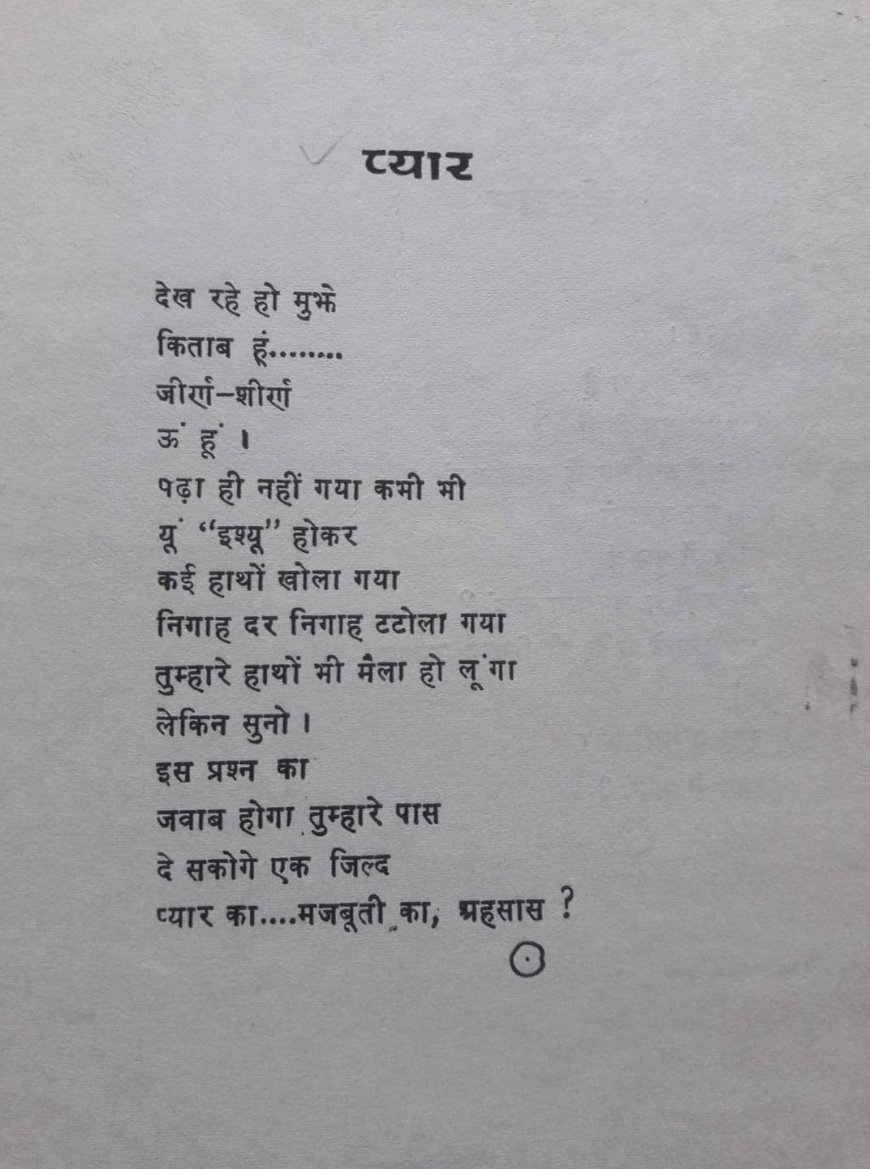 प्यार
देख रहे हो मुझे
किताब हूं........
जीर्ण-शीर्ण
ऊं हूं ।
पढ़ा ही नहीं गया कभी भी
यूं “इश्यू” होकर
कई हाथों खोला गया
निगाह दर निगाह टटोला गया
तुम्हारे हाथों भी मैला हो लूंगा
लेकिन सुनो ।
इस प्रश्न का
जवाब होगा तुम्हारे पास
दे सकोगे एक जिल्द
प्यार का....मजबूती का, अहसास ?